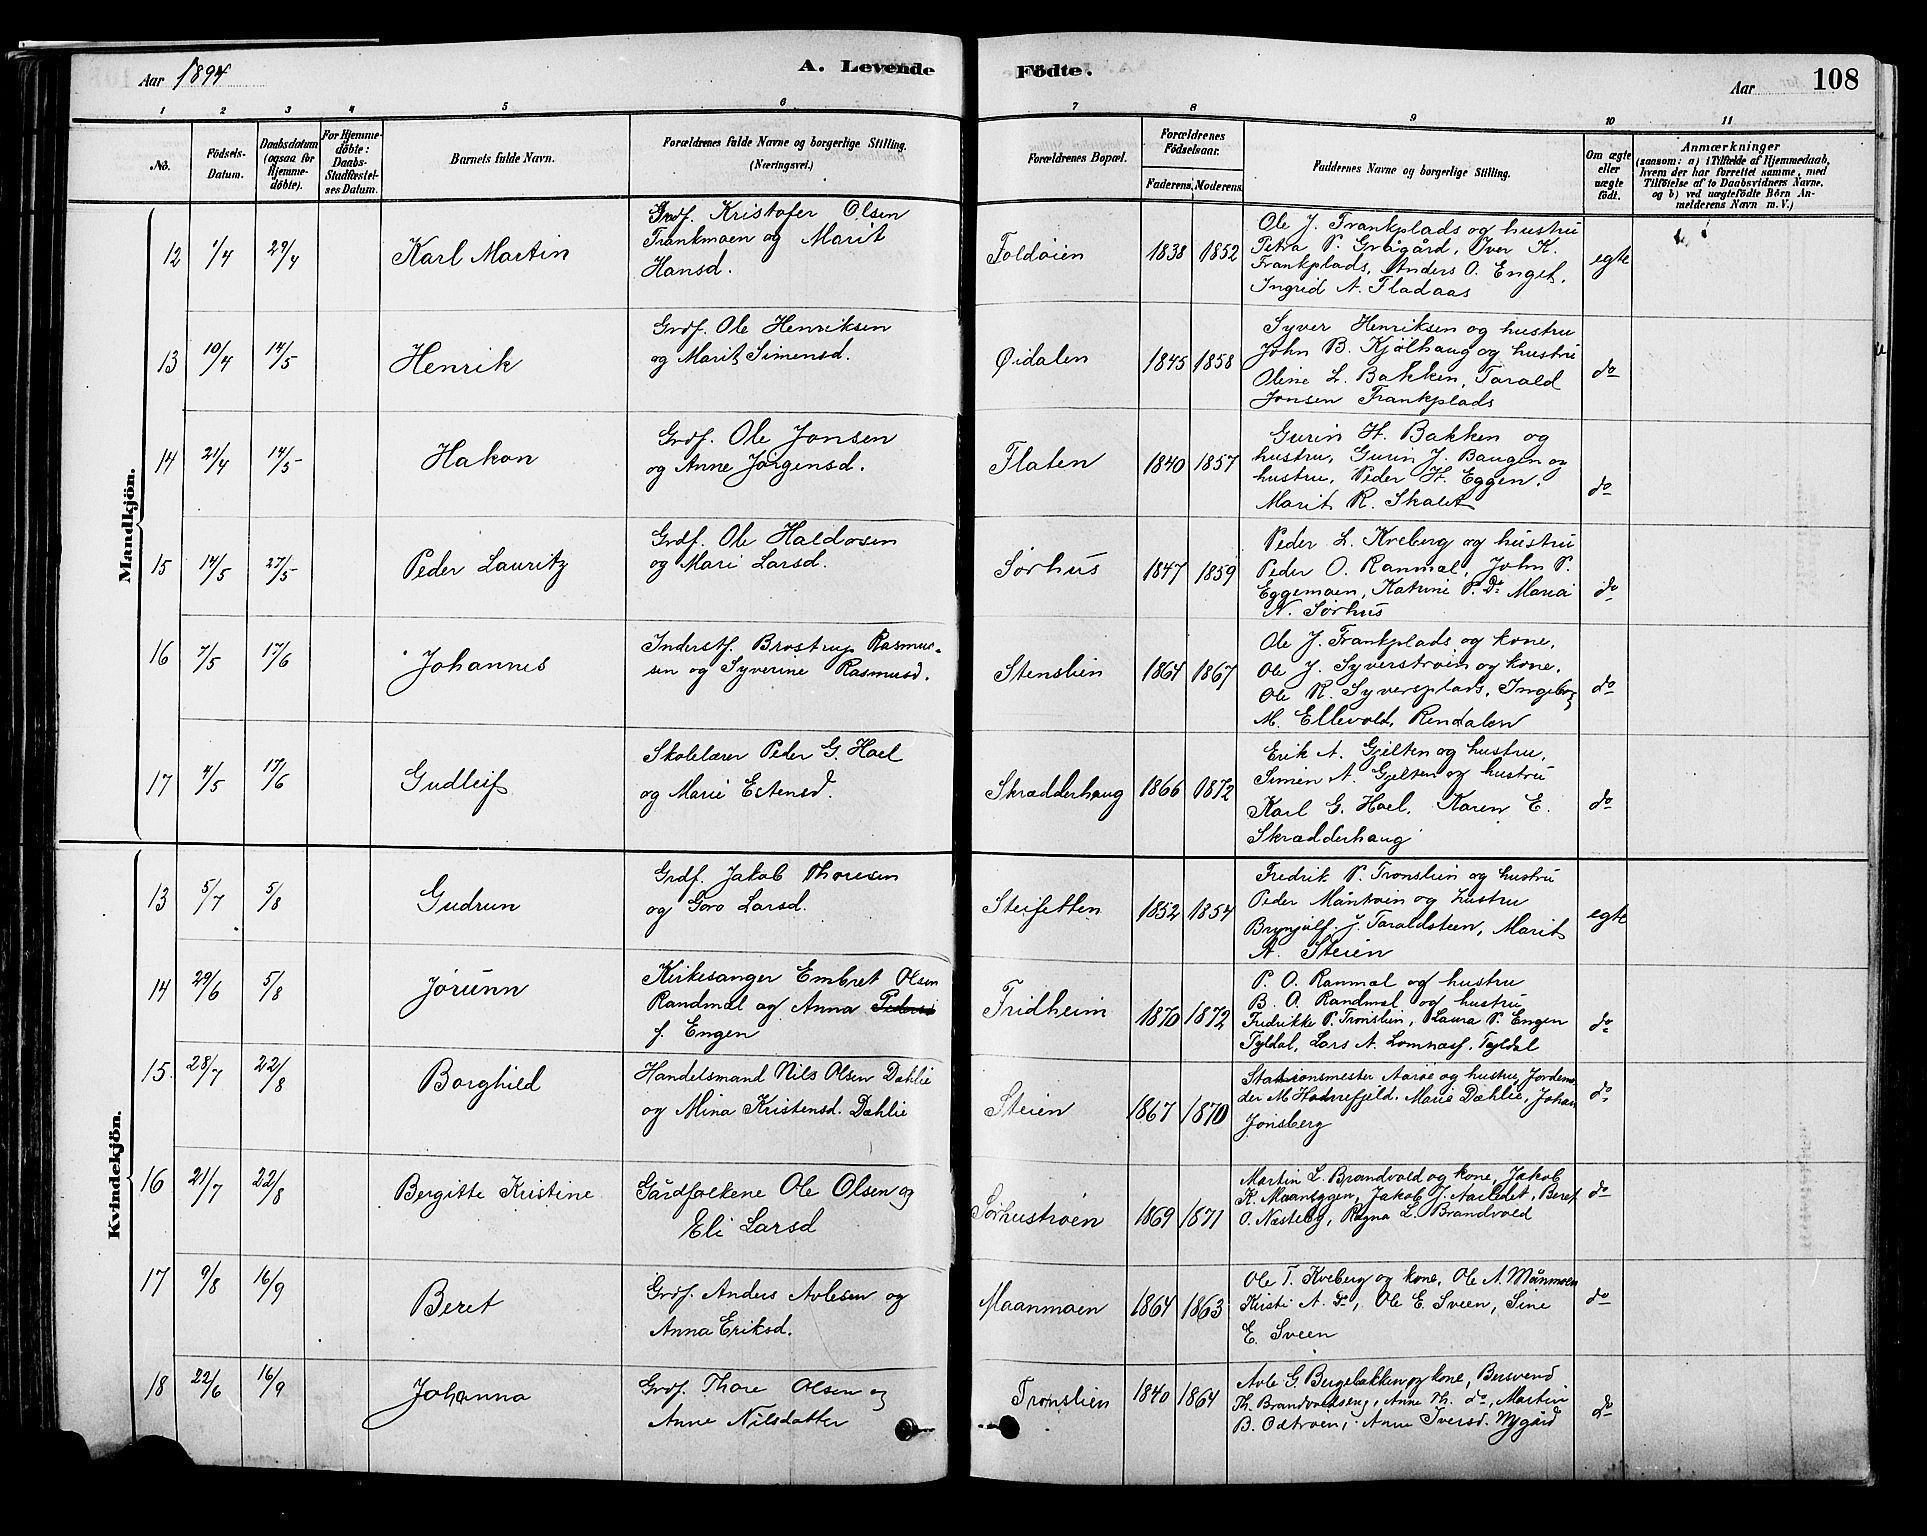 Aar 1894
A. Levende Födte.
Aar
108
1 2 3 4 5 6 7 8 9 10 11
No.
Födsels-Datum.
Daabsdatum (ogsaa for Hjemme-döbte).
For Hjemme-döbte: Daabs-Stadfæstel-ses Datum.
Barnets fulde Navn.
Forældrenes fulde Navne og borgerlige Stilling.
(Næringsvei.)
Forældrenes Bopæl.
Forældrenes Födselsaar.
Faderens. Moderens.
Faddernes Navne og borgerlige Stilling.
Om ægte eller uægte födt.
Anmærkninger
(saasom: a) i Tilfælde af Hjemmedaab,
hvem der har forrettet samme, med
Tilföielse af to Daabsvidners Navne,
og b) ved uægtefödte Börn An-
melderens Navn m. V.)
Mandkjön.
12 1/4 29/4 Karl Martin
Grdf. Kristofer Olsen
Frankmoen og Marit
Hansd.
Foldøien 1838 1852
Ole J. Frankplads og hustru
Petra P. Grågård, Iver K.
Frankplads, Anders O. Enget,
Ingrid A. Fladaas
egte
13 10/4 14/5 Henrik
Grdf. Ole Henriksen
og Marit Simensd.
Øidalen 1845 1858
Syver Henriksen og hustru
John B. Kjølhaug og hustru
Oline L. Bakken, Tarald
Jonsen Frankplads
do
14 21/4 14/5 Hakon
Grdf. Ole Jonsen
og Anne Jørgensd.
Flaten 1840 1857
Gurin H. Bakken og
hustru, Gurin J. Baugen og
hustru, Peder H. Eggen,
Marit R. Skalet
do
15 14/5 27/5 Peder Lauritz
Grdf. Ole Haldosen
og Mari Larsd.
Sørhus 1847 1859
Peder L. Kveberg og hustru
Peder O. Ranmæl, John P.
Eggemoen, Katrine P. Do Maria
N. Sørhus
do
16 7/5 17/6 Johannes
Inderstf. Brostrup Rasmus-
sen og Syverine Rasmusd.
Stenslien 1864 1867
Ole J. Frankplads og kone,
Ole J. Syverstrøen og kone,
Ole R. Syversplads, Ingeborg
M. Ellevold, Rendalen
do
17 4/5 17/6 Gudleif
Skolelærer Peder G. Hoel
og Marie Estensd.
Skrædderhaug 1866 1872
Erik A. Gjelten og hustru,
Simen A. Gjelten og hustru
Karl G. Hoel, Karen E.
Skrædderhaug
do
Kvindekjön.
13 5/7 5/8 Gudrun
Grdf. Jakob Thoresen
og Goro Larsd.
Steifetten 1852 1854
Fredrik P. Tronslien og hustru
Peder Måntrøen og hustru
Brynjulf J. Taraldsteen, Marit
A. Steien
egte
14 29/6 5/8 Jørunn
Kirkesanger Embret Olsen
Randmæl og Anna Pedersd
f. Engen
Fridheim 1870 1872
P. O. Ranmæl og hustru
B. O. Randmæl og hustru
Fredrikke P. Tronslien, Laura P. Engen
Tyldal, Lars A. Lomnæsf. Tyldal
do
15. 28/7 22/8 Borghild
Handelsmand Nils Olsen Dæhlie
og Mina Kristensd. Dæhlie
Steien 1867 1870
Stationsmester Aarøe og hustru, Jordemo-
der M. Hodnefjeld. Marie Dæhlie, Johan
Jonsberg
do
16 21/7 22/8 Bergitte Kristine
Gårdfolkene Ole Olsen og
Eli Larsd
Sørhustrøen 1869 1871
Martin L. Brandvold og kone, Jakob
K. Maaneggen, Jakob J. Aasledet, Beret
O. Næsteby, Ragna L. Brandvold
do
17 9/8 16/9 Beret
Grdf. Anders Avlesen og
Anna Eriksd.
Maanmoen 1864 1863
Ole T. Kveberg og kone, Ole A. Månmoen
Kirsti A. Do, Ole E. Sveen, Sine
E. Sveen
do
18 22/6 16/9 Johanna
Grdf. Thore Olsen og
Anne Nilsdatter
Tronslien 1840 1864
Avle G. Bergebakken og kone, Bersvend
Th. Brandvoldseng, Anne Th. do, Martin
B. Odtrøen, Anne Iversd. Nygård
do